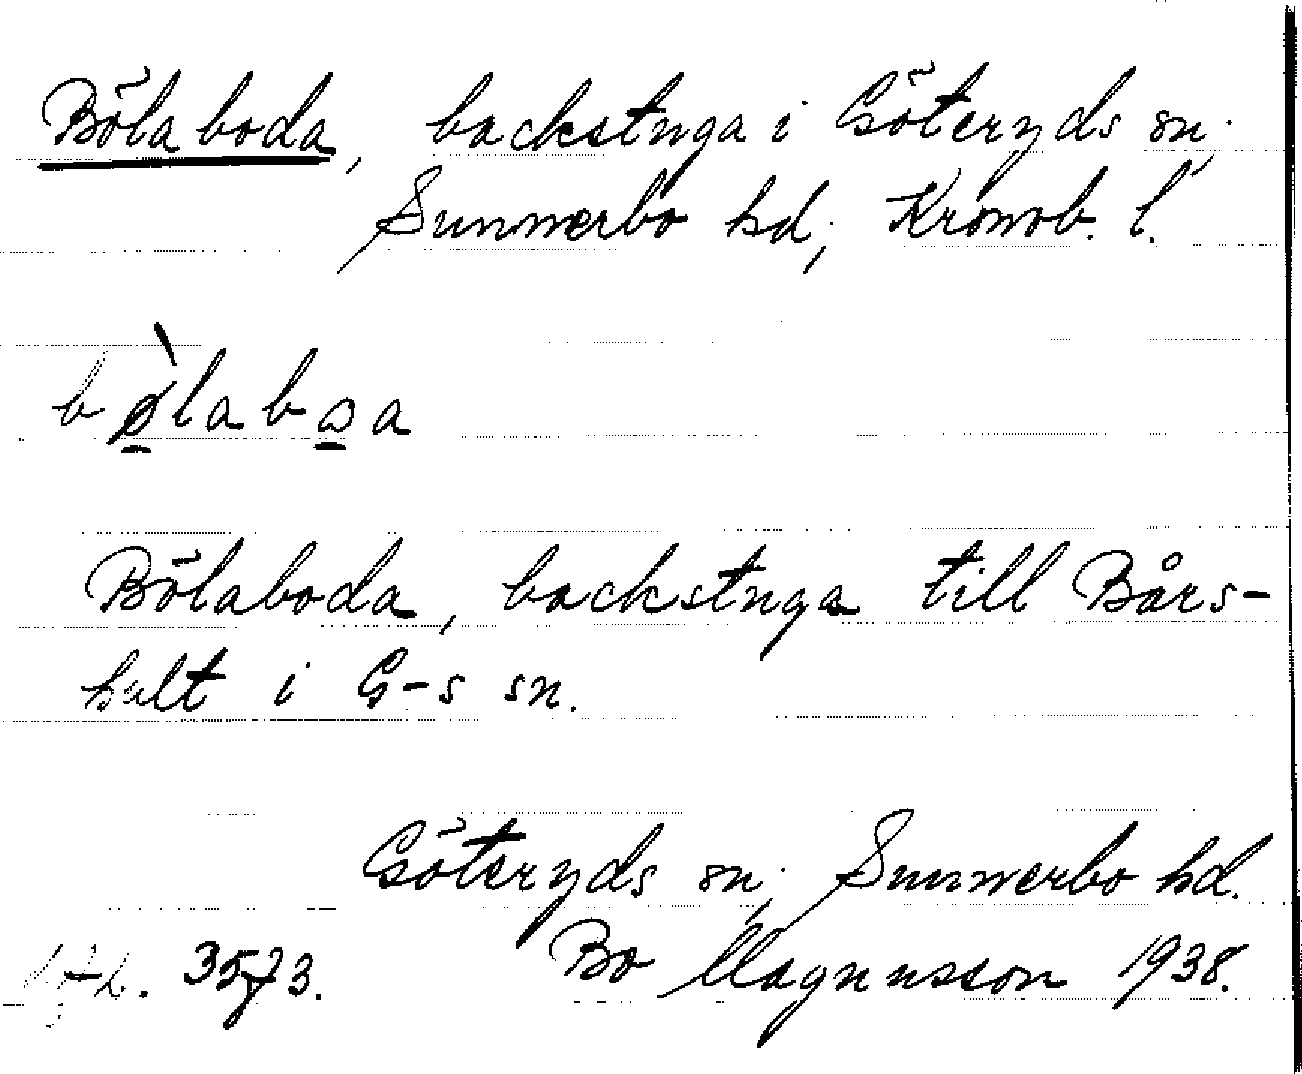 Bölaboda, backstuga i Göteryds sn;
Sunnerbo hd; Kronob. l.
bø̀labɷa
Bölaboda, backstuga till Bårs-
hult i G-s sn.
Göteryds sn; Sunnerbo hd.
3573. Bo Magnusson 1938.